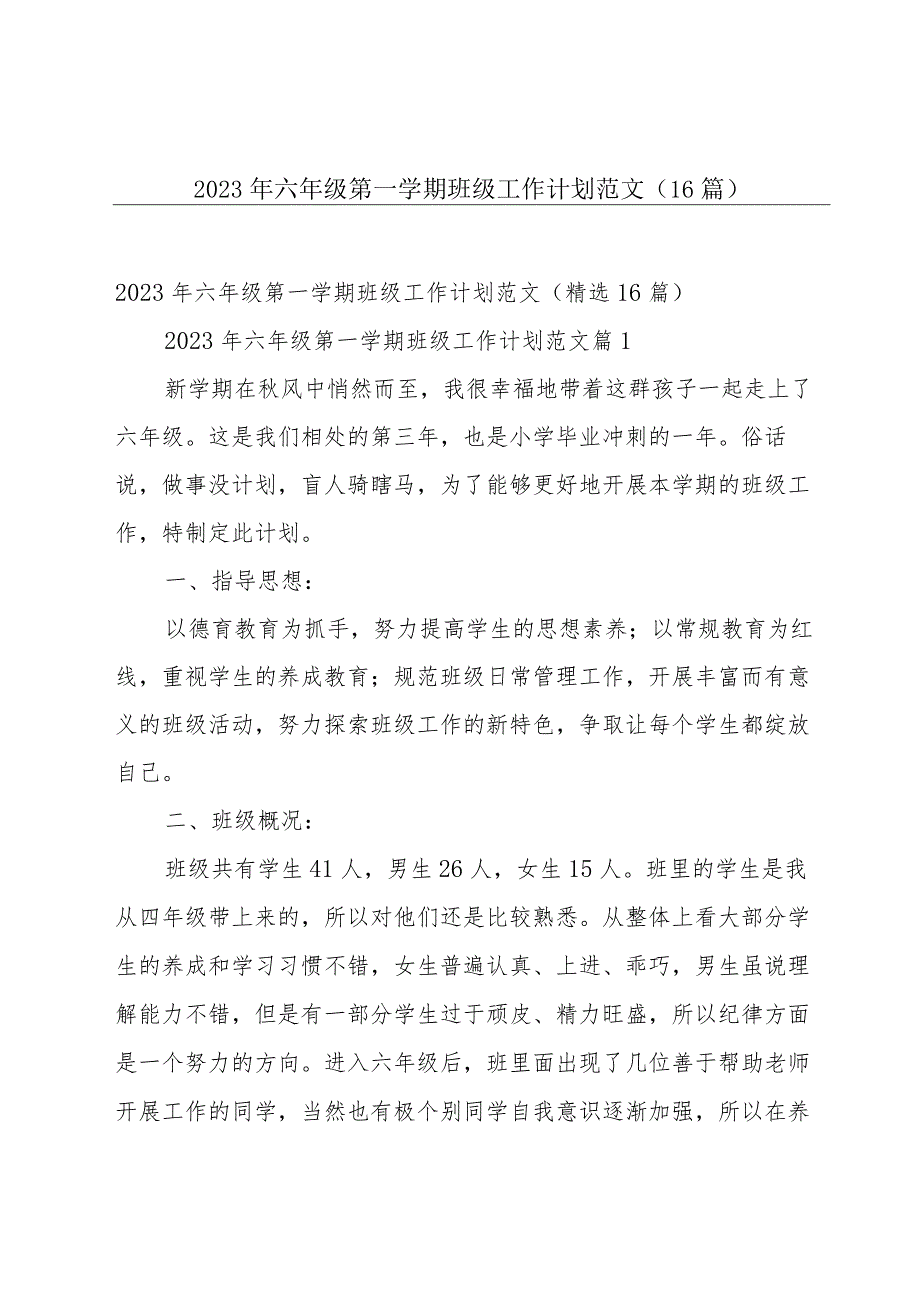 2023 年六年级第一学期班级工作计划范文（16 篇）
2023 年六年级第一学期班级工作计划范文（精选 16 篇）
2023 年六年级第一学期班级工作计划范文篇 1
新学期在秋风中悄然而至，我很幸福地带着这群孩子一起走上了
六年级。这是我们相处的第三年，也是小学毕业冲刺的一年。俗话
说，做事没计划，盲人骑瞎马，为了能够更好地开展本学期的班级工
作，特制定此计划。
一、指导思想：
以德育教育为抓手，努力提高学生的思想素养；以常规教育为红
线，重视学生的养成教育；规范班级日常管理工作，开展丰富而有意
义的班级活动，努力探索班级工作的新特色，争取让每个学生都绽放
自己。
二、班级概况：
班级共有学生 41 人，男生 26 人，女生 15 人。班里的学生是我
从四年级带上来的，所以对他们还是比较熟悉。从整体上看大部分学
生的养成和学习习惯不错，女生普遍认真、上进、乖巧，男生虽说理
解能力不错，但是有一部分学生过于顽皮、精力旺盛，所以纪律方面
是一个努力的方向。进入六年级后，班里面出现了几位善于帮助老师
开展工作的同学，当然也有极个别同学自我意识逐渐加强，所以在养